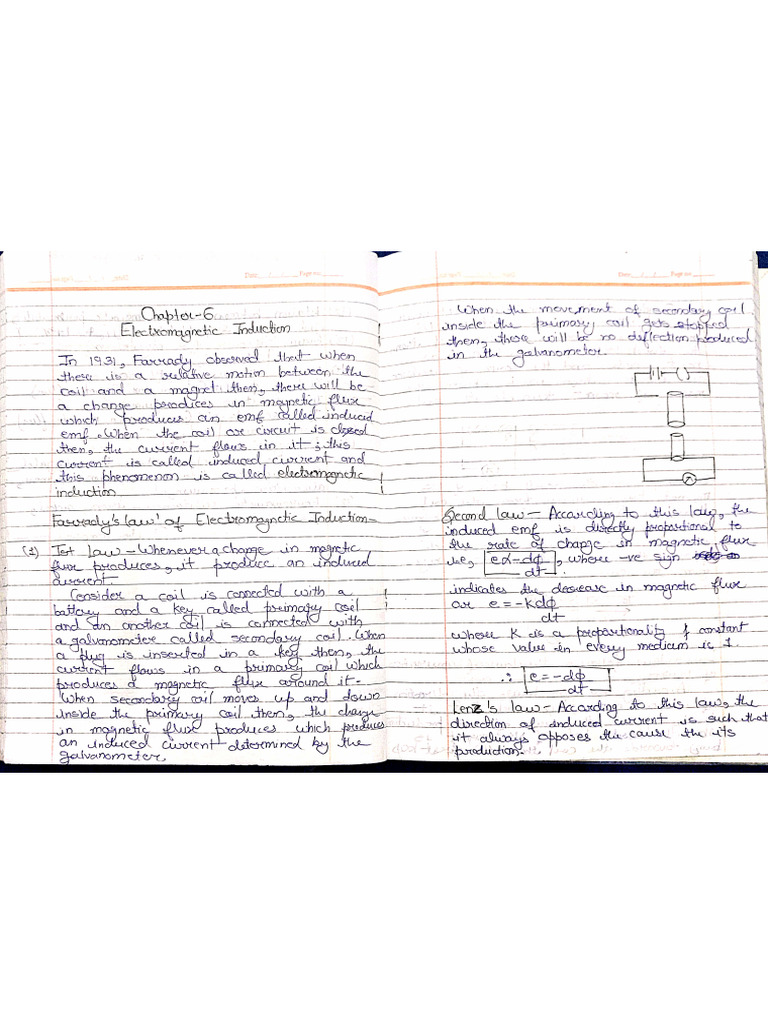 Date __/__/__ Page no ____
Chapter-6
Electromagnetic Induction
In 1931, Farrady observed that when
there is a relative motion between the
coil and a magnet then, there will be
a change produces in magnetic flux
which produces an emf called induced
emf. When the coil or circuit is closed
then, the current flows in it; this
current is called induced current and
this phenomenon is called electromagnetic
induction
Farrady's law of Electromagnetic Induction-
Ist law - Whenever a change in magnetic
flux produces, it produce an induced
current.
Consider a coil is connected with a
battery and a key called primary coil
and an another coil is connected with
a galvanometer called secondary coil. When
a plug is inserted in a key then, the
current flows in a primary coil which
produces a magnetic flux around it.
When secondary coil moves up and down
inside the primary coil then, the change
in magnetic flux produces which produces
an induced current determined by the
galvanometer.
Date __/__/__ Page no ____
When the movement of secondary coil
inside the primary coil gets stopped
then, there will be no deflection produced
in the galvanometer.
Second law - According to this law, the
induced emf is directly proportional to
the rate of change in magnetic flux
i.e, e α -dϕ/dt, where -ve sign
indicates the decrease in magnetic flux
or e = -k dϕ/dt
where K is a proportionality constant
whose value in every medium is 1
∴ e = -dϕ/dt
Lenz's law - According to this law, the
direction of induced current is such that
it always opposes the cause the its
production.